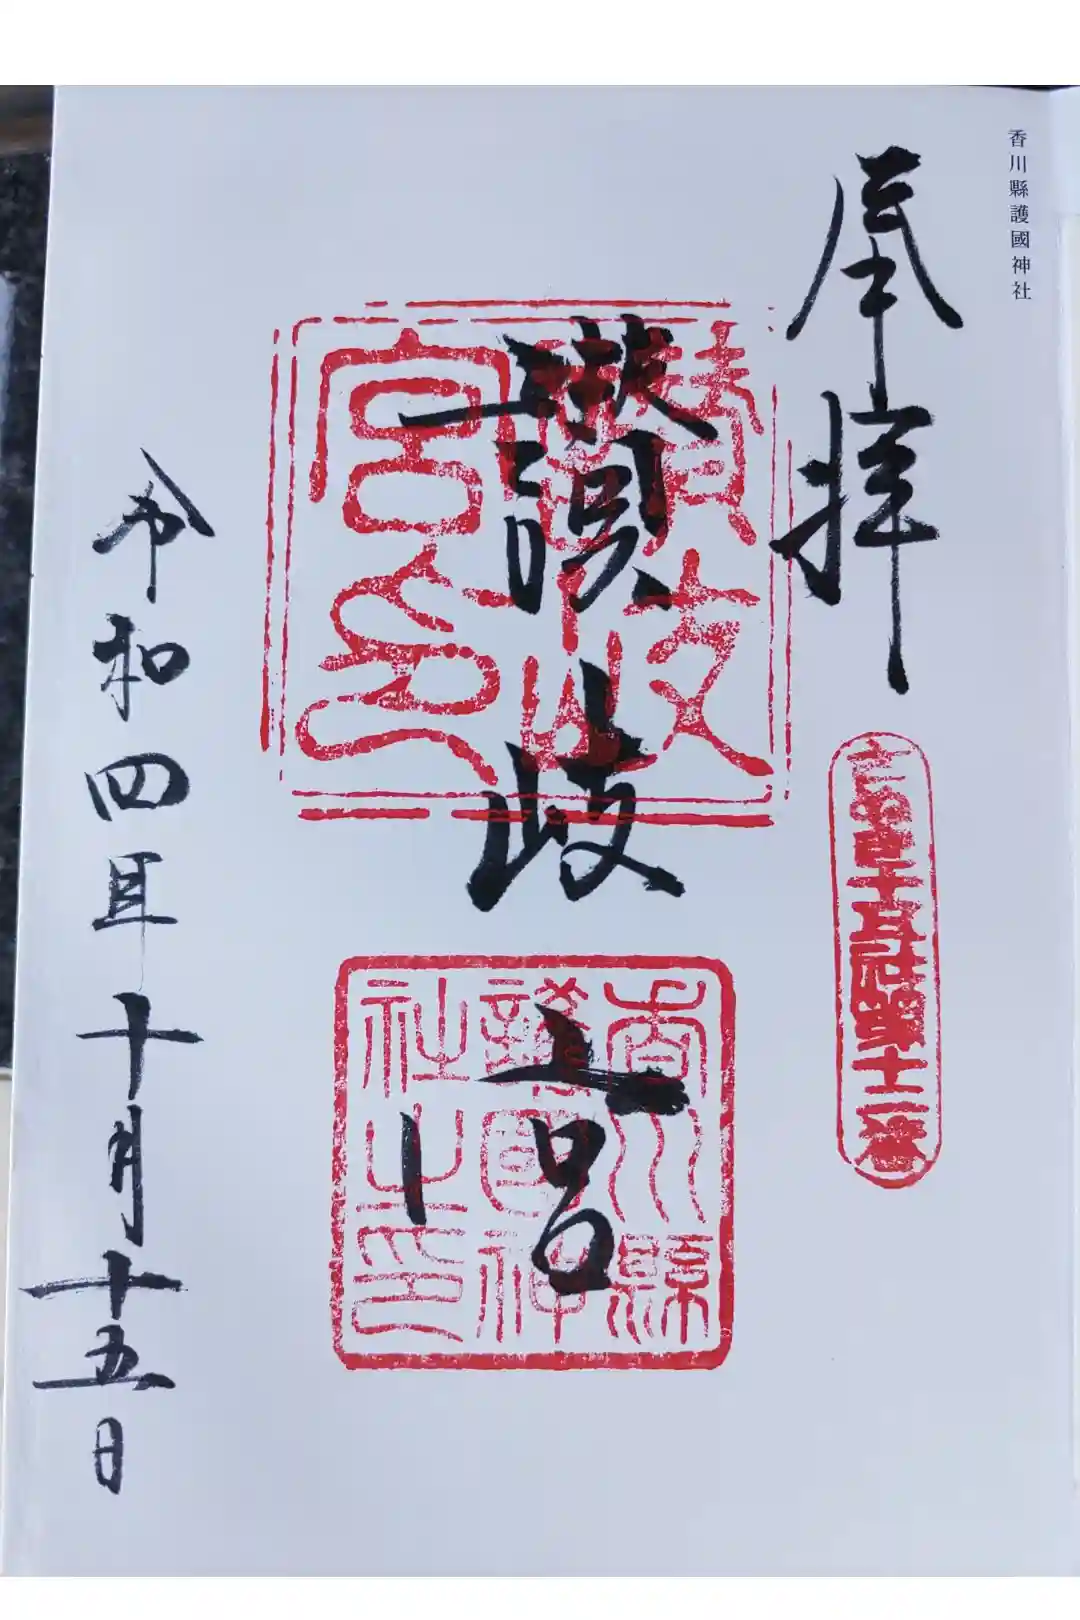 香川縣護國神社
奉拝
讃岐宮
讃岐宮印
香川縣護國神社之印
令和四年十月十五日